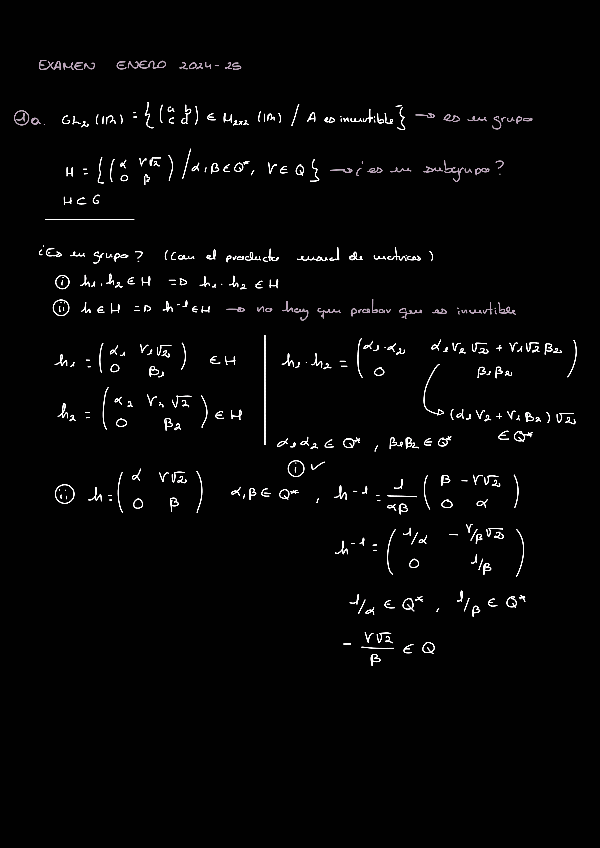 EXAMEN ENERO 2024-25
1a. GL₂(ℝ) = {(a b; c d) ∈ M₂ₓ₂(ℝ) / A es invertible} → es un grupo
H = {(α γ√2; 0 β) / α,β ∈ Q*, γ ∈ Q} → ¿es un subgrupo?
H ⊂ G
¿Es un grupo? (Con el producto usual de matrices)
i) h₁,h₂ ∈ H => h₁·h₂ ∈ H
ii) h ∈ H => h⁻¹ ∈ H → no hay que probar que es invertible
h₁ = (α₁ γ₁√2; 0 β₁) ∈ H
h₂ = (α₂ γ₂√2; 0 β₂) ∈ H
h₁·h₂ = (α₁·α₂ α₁γ₂√2 + γ₁√2β₂; 0 β₁β₂)
→ (α₁γ₂ + γ₁β₂)√2
∈ Q*
α₁α₂ ∈ Q*, β₁β₂ ∈ Q*
i) ✓
ii) h = (α γ√2; 0 β) α,β ∈ Q*, h⁻¹ = 1/αβ (β -γ√2; 0 α)
h⁻¹ = (1/α -γ/β√2; 0 1/β)
1/α ∈ Q*, 1/β ∈ Q*
- γ√2/β ∈ Q